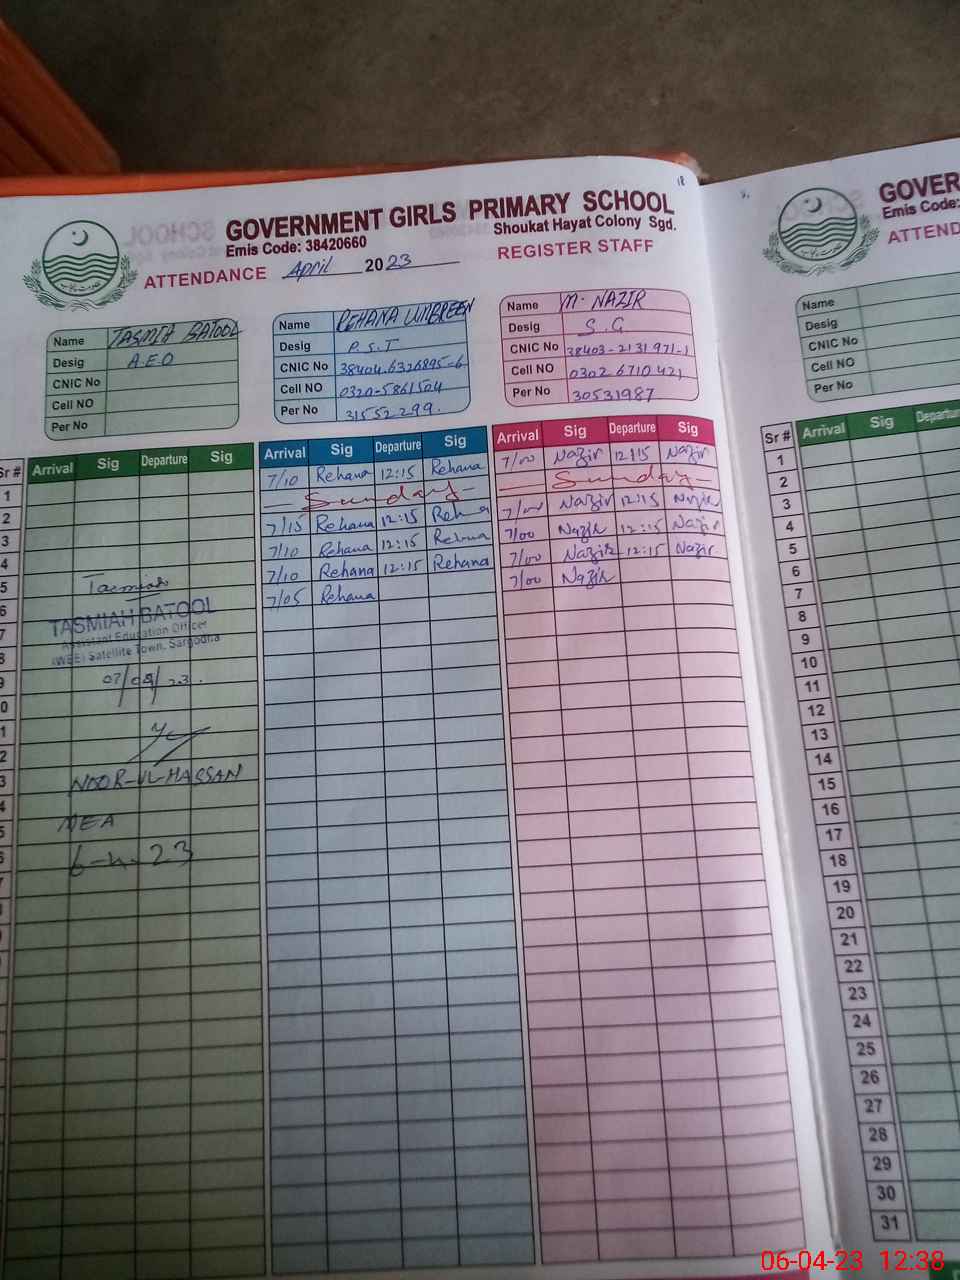 18
GOVERNMENT GIRLS PRIMARY SCHOOL
Emis Code: 38420660
Shoukat Hayat Colony Sgd.
ATTENDANCE April 2023
REGISTER STAFF
Name TASMIA BATOOL
Desig A.E.O
CNIC No
Cell NO
Per No
Name REHANA UMBREEN
Desig P.S.T
CNIC No 38404-6326895-6
Cell NO 0320-5861504
Per No 31552299.
Name M. NAZIR
Desig S.G
CNIC No 38403-2131971-1
Cell NO 0302 6710421
Per No 30531987
Sr # Arrival Sig Departure Sig Arrival Sig Departure Sig Arrival Sig Departure Sig
1 7/10 Rehana 12:15 Rehana 7/00 Nazir 12:15 Nazir
2 Sunday Sunday
3 7/15 Rehana 12:15 Rehana 7/00 Nazir 12:15 Nazir
4 7/10 Rehana 12:15 Rehana 7/00 Nazir 12:15 Nazir
5 7/10 Rehana 12:15 Rehana 7/00 Nazir 12:15 Nazir
6 7/05 Rehana 7/00 Nazir
Tasmiah
TASMIAH BATOOL
Assistant Education Officer
(WEE) Satellite Town, Sargodha
NOOR-UL-HASSAN
MEA
6-4-23
GOVER
Emis Code:
ATTEND
Name
Desig
CNIC No
Cell NO
Per No
Sr # Arrival Sig Departure
1
2
3
4
5
6
7
8
9
10
11
12
13
14
15
16
17
18
19
20
21
22
23
24
25
26
27
28
29
30
31
06-04-23 12:38